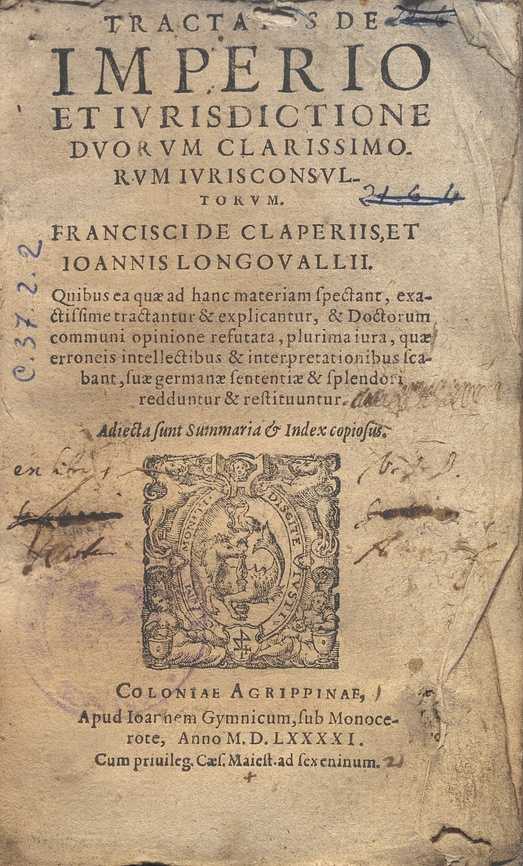 TRACTATVS DE
IMPERIO
ET IVRISDICTIONE
DVORVM CLARISSIMO-
RVM IVRISCONSVL-
TORVM.
21-6-4
FRANCISCI DE CLAPERIIS, ET
IOANNIS LONGOVALLII.
C.37.2.2
Quibus ea quæ ad hanc materiam ſpectant, exa-
ctiſſime tractantur & explicantur, & Doctorum
communi opinione refutata, plurima iura, quæ
erroneis intellectibus & interpretationibus ſca-
bant, ſuæ germanæ ſententiæ & ſplendori
redduntur & reſtituuntur.
Adiecta ſunt Summaria & Index copioſus.
MONITI
DISCITE IVSTI
COLONIAE AGRIPPINAE,
Apud Ioannem Gymnicum, ſub Monoce-
rote, Anno M.D.LXXXXI.
Cum priuileg. Cæſ. Maieſt. ad ſexennium.